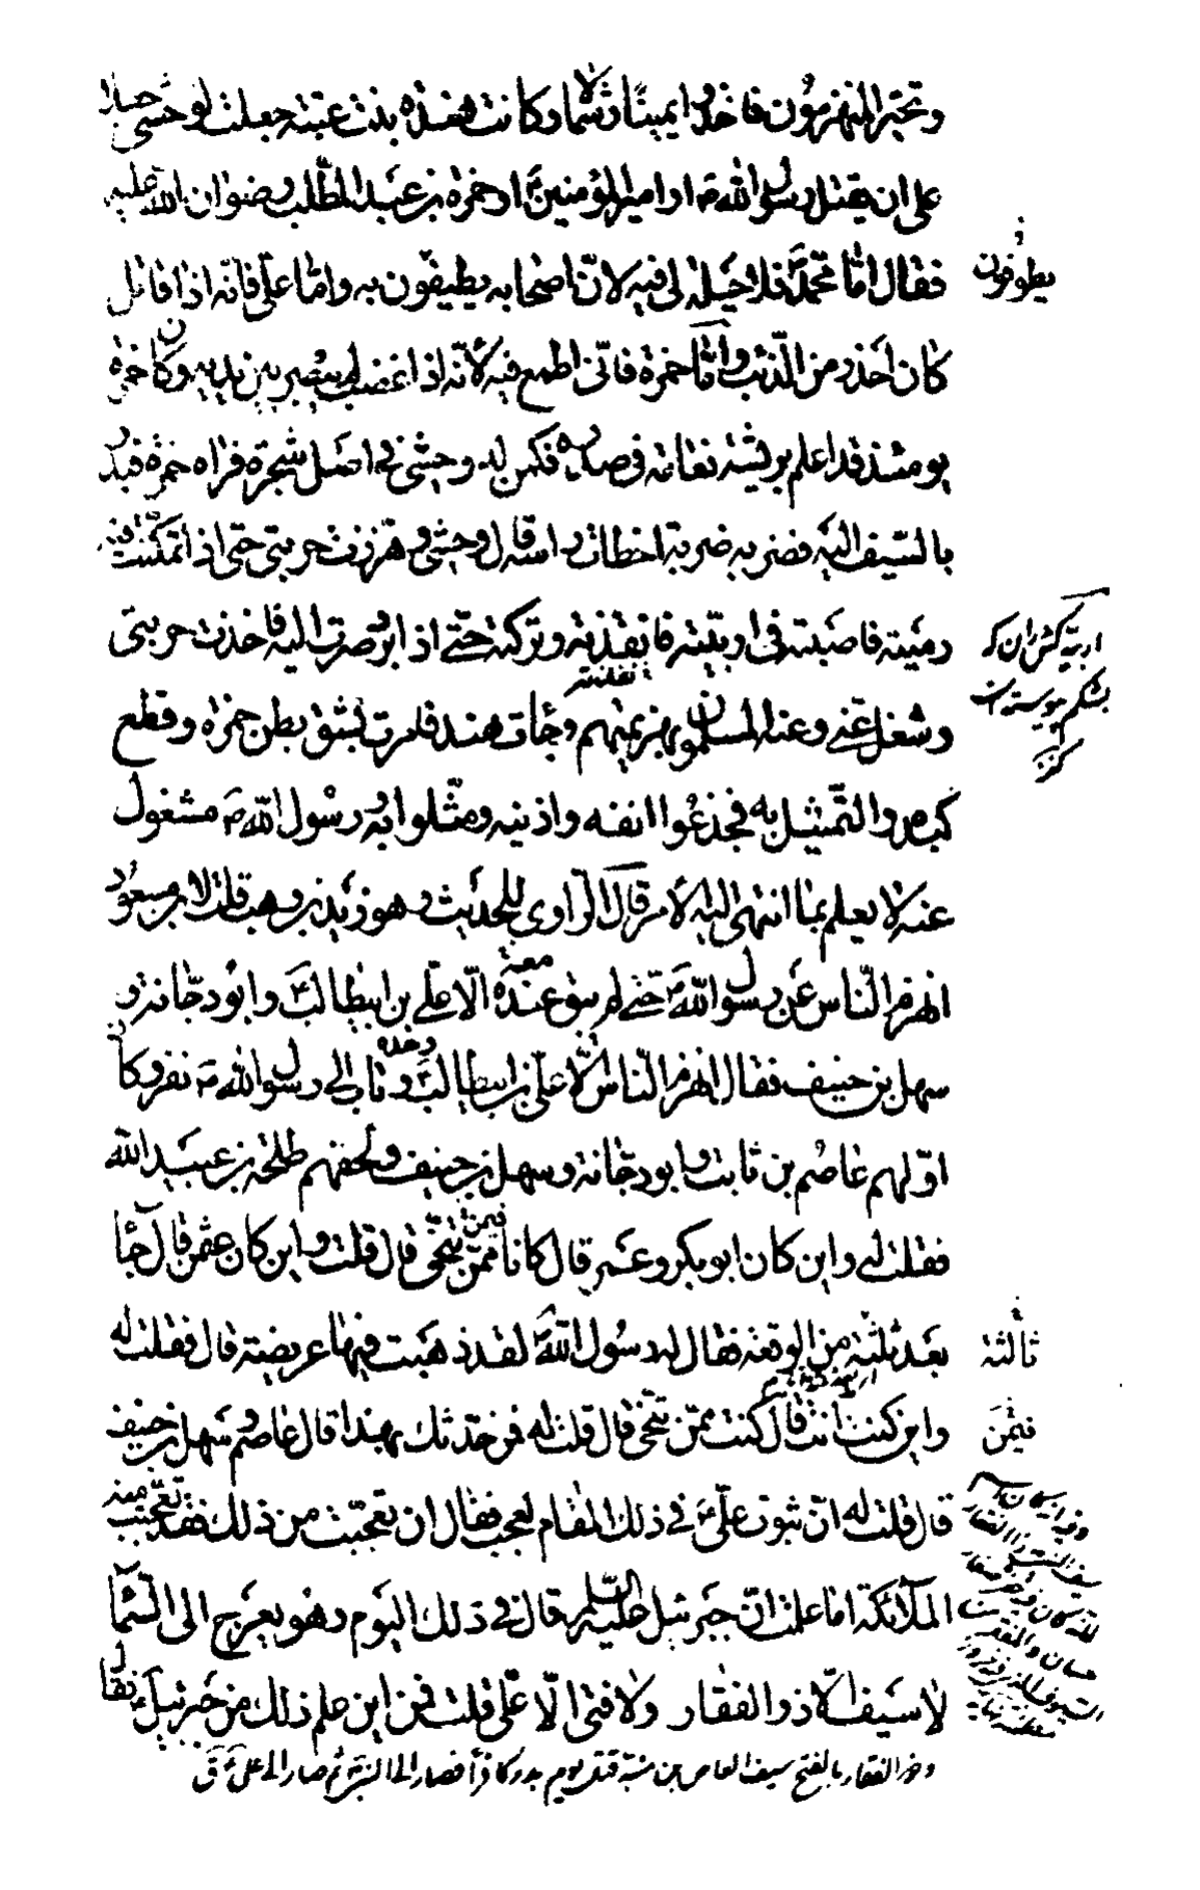 وتحيّر المنهزمون فاخذوا يمينًا وشمالا وكانت هنده بنت عتبة جعلت لوحشى جعلا
على ان يقتل رسول الله ص او امير المؤمنين ع او حمزة بن عبد المطّلب رضوان الله عليه
فقال امّا محمّد فلا حيلة لى فيه لانّ اصحابه يطيفون به وامّا علىّ فانّه اذا قاتل
يطوفون
كان احذر من الذّئب وامّا حمزة فانّى اطمع فيه لأنّه اذا غضب لم يبصر بين يديه وكان حمزة
يومئذ قد اعلم بريشة نعامة فى صدره فكمن له وحشى فى اصل شجرة فراه حمزة فبدر
بالسّيف اليه فضربه ضربة اخطات راسه قال وحشى وهززت حربتى حتى اذا تمكّنت منه
رميته فاصبته فى اربيّته فانفذته وتركته حتّى اذا برد صرت اليه فاخذت حربتى
اربيّه كش ران كه
بشكم پيوسته است
كنز
وشغل عنّى وعنه المسلمون بهزيمتهم وجائت هند فامرت بشقّ بطن حمزة وقطع
كبده والتّمثيل به فجذعوا انفه واذنيه ومثّلوا به ورسول الله ص مشغول
عنه لا يعلم بما انتهى اليه الأمر قال الرّاوى للحديث وهو زيد بن وهب قلت لابن مسعود
انهزم النّاس عن رسول الله ص حتّى لم يبق عنده الّا علىّ بن ابيطالب ع وابو دجانة و
معه
سهل بن حنيف فقال انهزم النّاس الّا علىّ بن ابيطالب ع وحده وثاب الى رسول الله ص نفر وكان
اوّلهم عاصم بن ثابت وابو دجانة وسهل بن حنيف ولحقهم طلحة بن عبيد الله
فقلت له واين كان ابو بكر وعمر قال كانا ممّن تنحّى قال قلت واين كان عثمن قال جاء
فيمن
بعد ثلثة من الوقعة فقال له رسول الله ص لقد ذهبت فيها عريضة قال فقلت له
ثالثة
واين كنت انت قال كنت ممّن تنحّى قال قلت له فمن حدّثك بهذا قال عاصم وسهل بن حنيف
فيمن
قال قلت له انّ ثبوت علىّ ع فى ذلك المقام لعجب فقال ان تعجّبت من ذلك فقد تعجّبت منه
الملائكة اما علمت انّ جبرئيل عليه السّلم قال فى ذلك اليوم وهو يعرج الى السّماء
لا سيف الّا ذو الفقار ولا فتى الّا علىّ قلت فمن اين علم ذلك من جبرئيل ع فقال
وذو الفقار بالفتح سيف العاص بن منبّه قتل يوم بدر كافرًا فصار الى النبى ص ثم صار الى علىّ ع ق